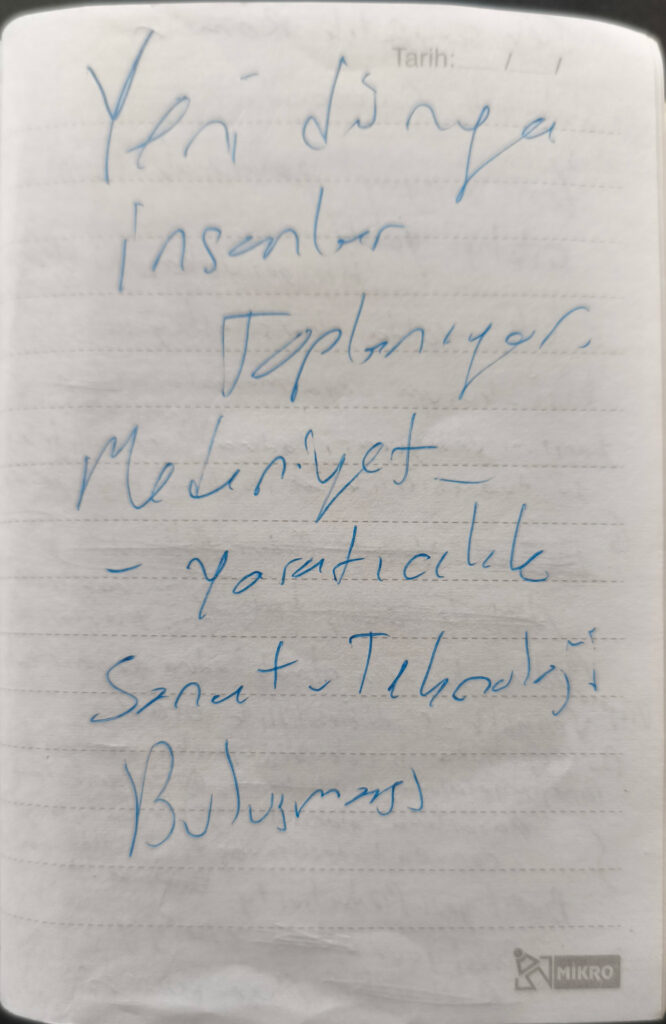 Tarih: / /
Yeni dünya
insanlar
Toplanıyor.
Medeniyet -
- yaratıcılık
Sanat - Teknoloji
Buluşması
MİKRO